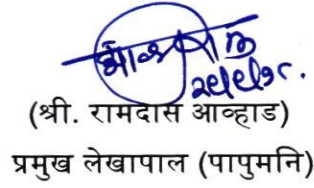 (श्री. रामदास आव्हाड)
प्रमुख लेखापाल (पापुमनि)